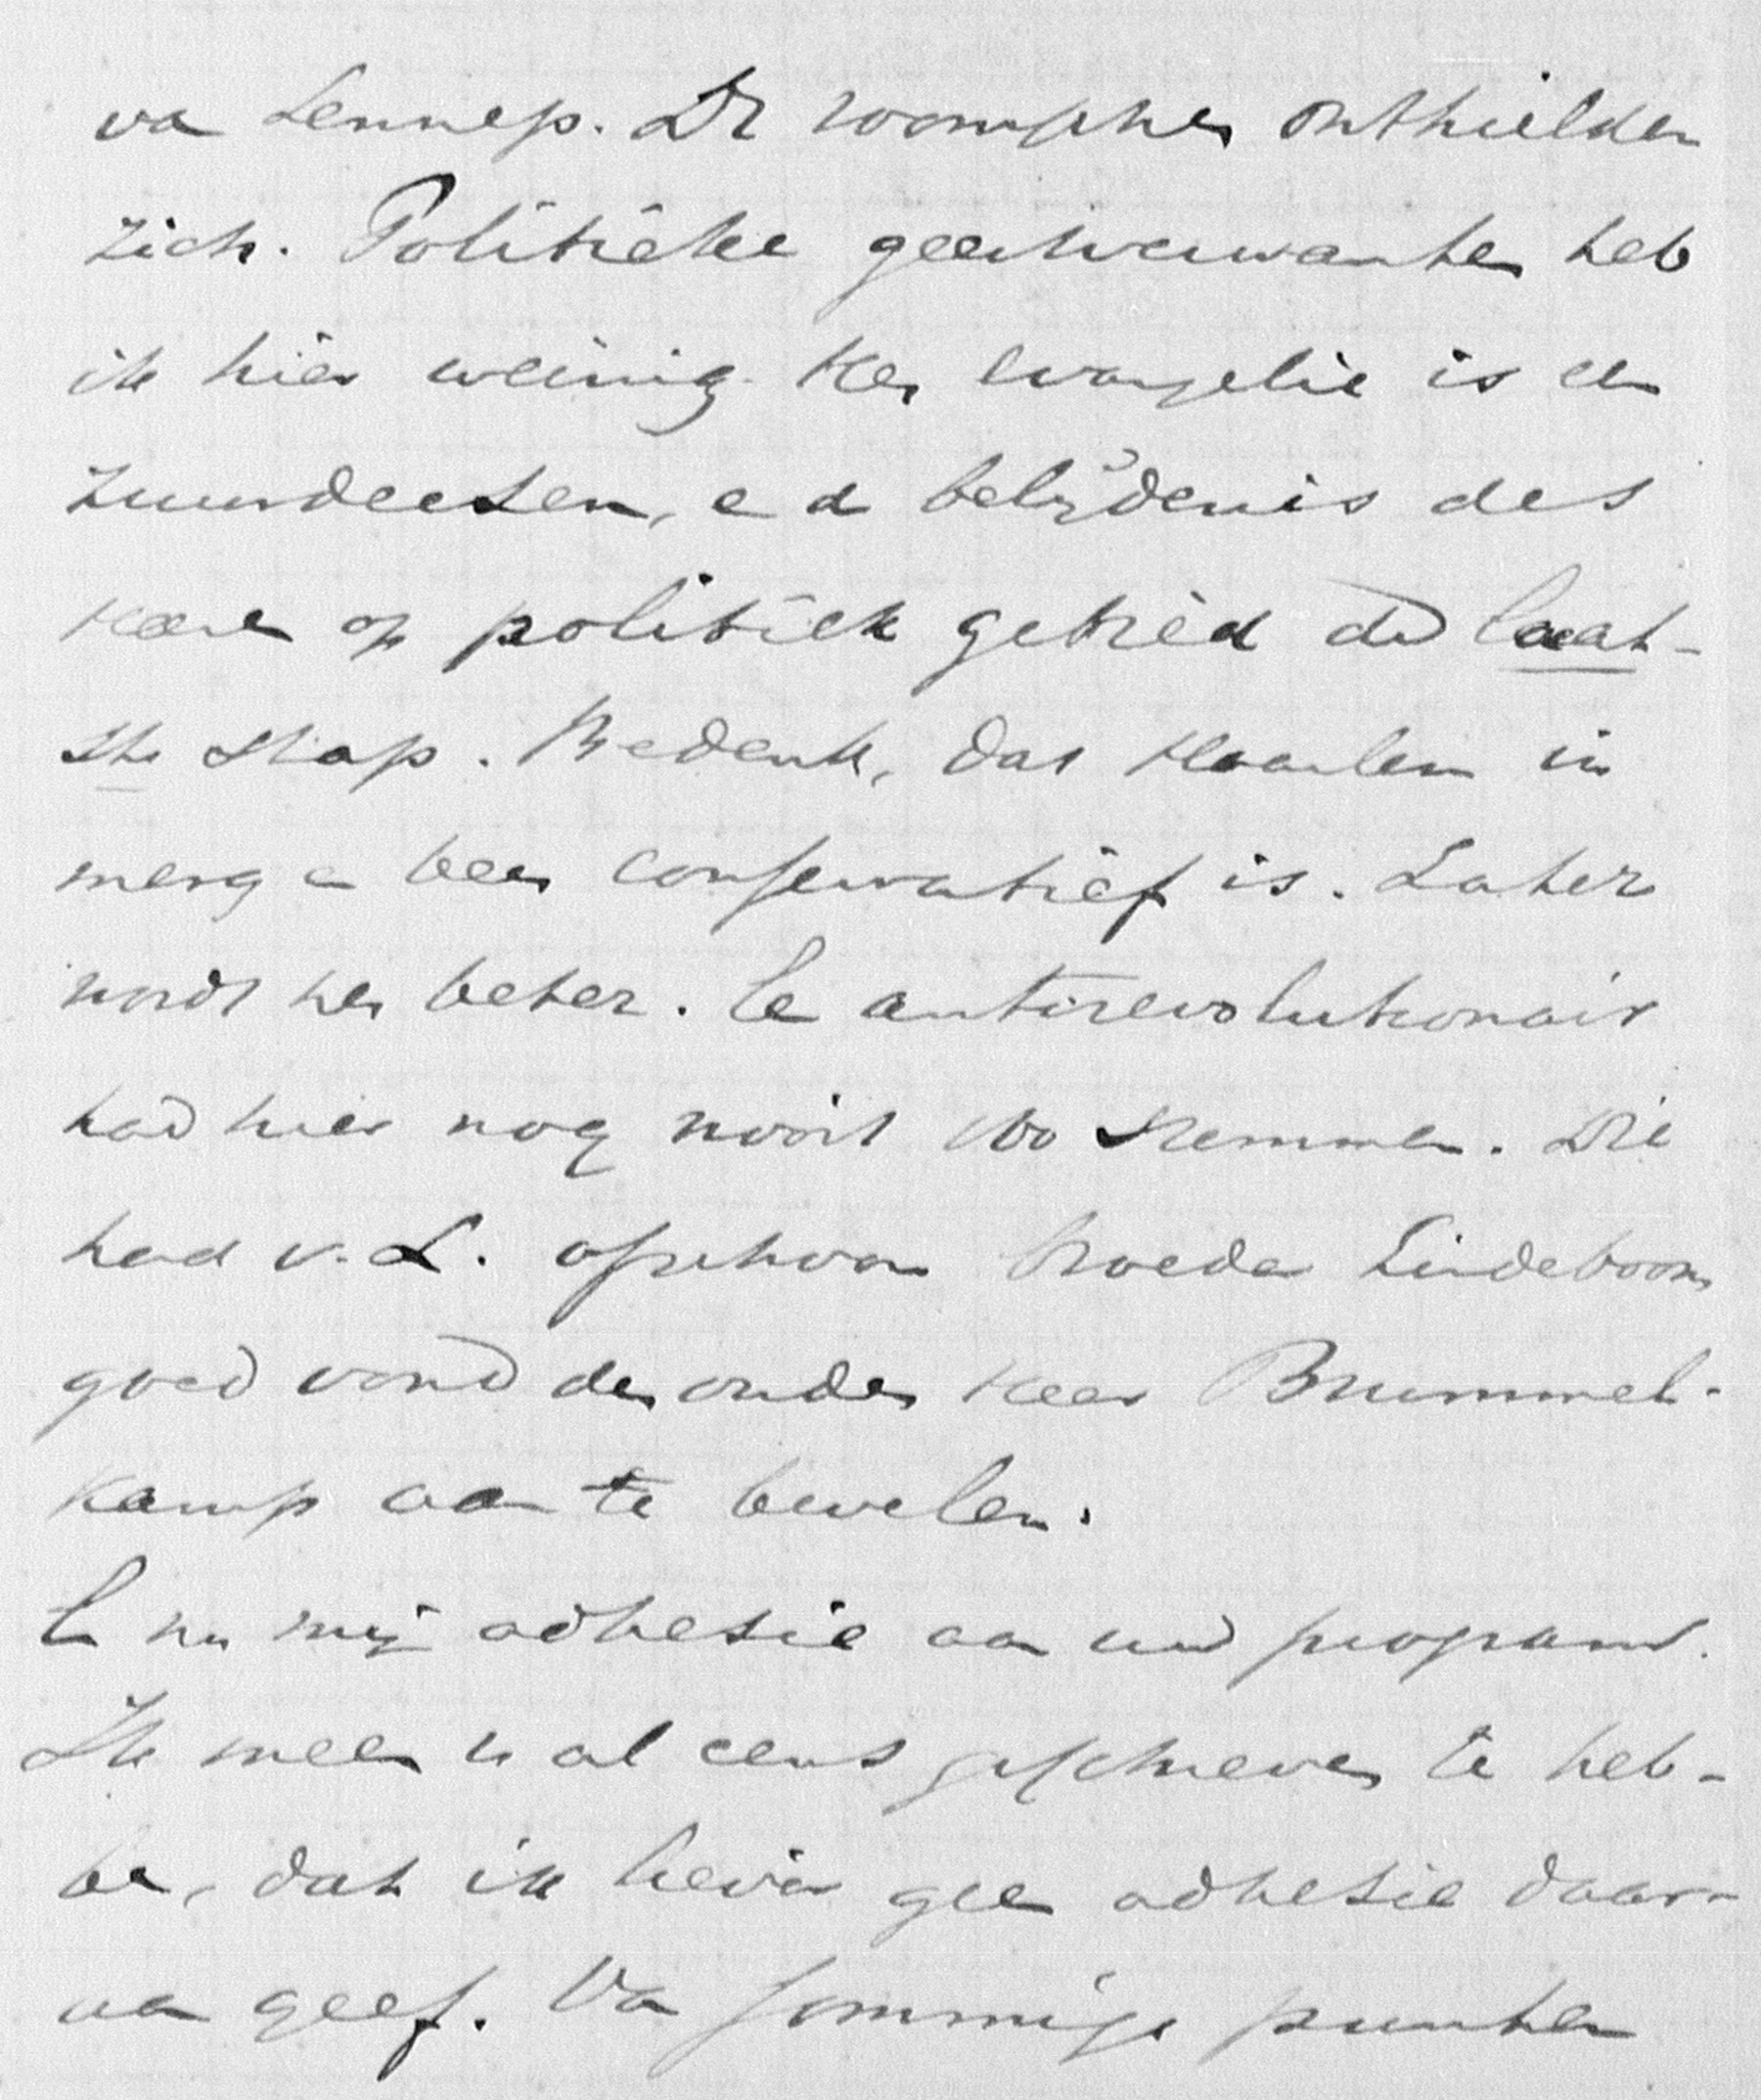 van Lennep. De roomschen onthielden
zich. Politieke geestverwanten heb
ik hier weinig. Het evangelie is een
zuurdeesem, en de belijdenis des
Heeren op politiek gebied de laat-
ste stap. Bedenk, dat Haarlem in
merg en been conservatief is. Later
wordt het beter. Een antirevolutionair
had hier nog nooit 100 stemmen. Die
had v. L. ofschoon broeder Lindeboom
goed vond den ouden Heer Brummel-
kamp aan te bevelen.
En nu mijn adhesie aan uw program.
Ik meen u al eens geschreven te heb-
ben, dat ik liever geen adhesie daar-
aan geef. Van sommige punten